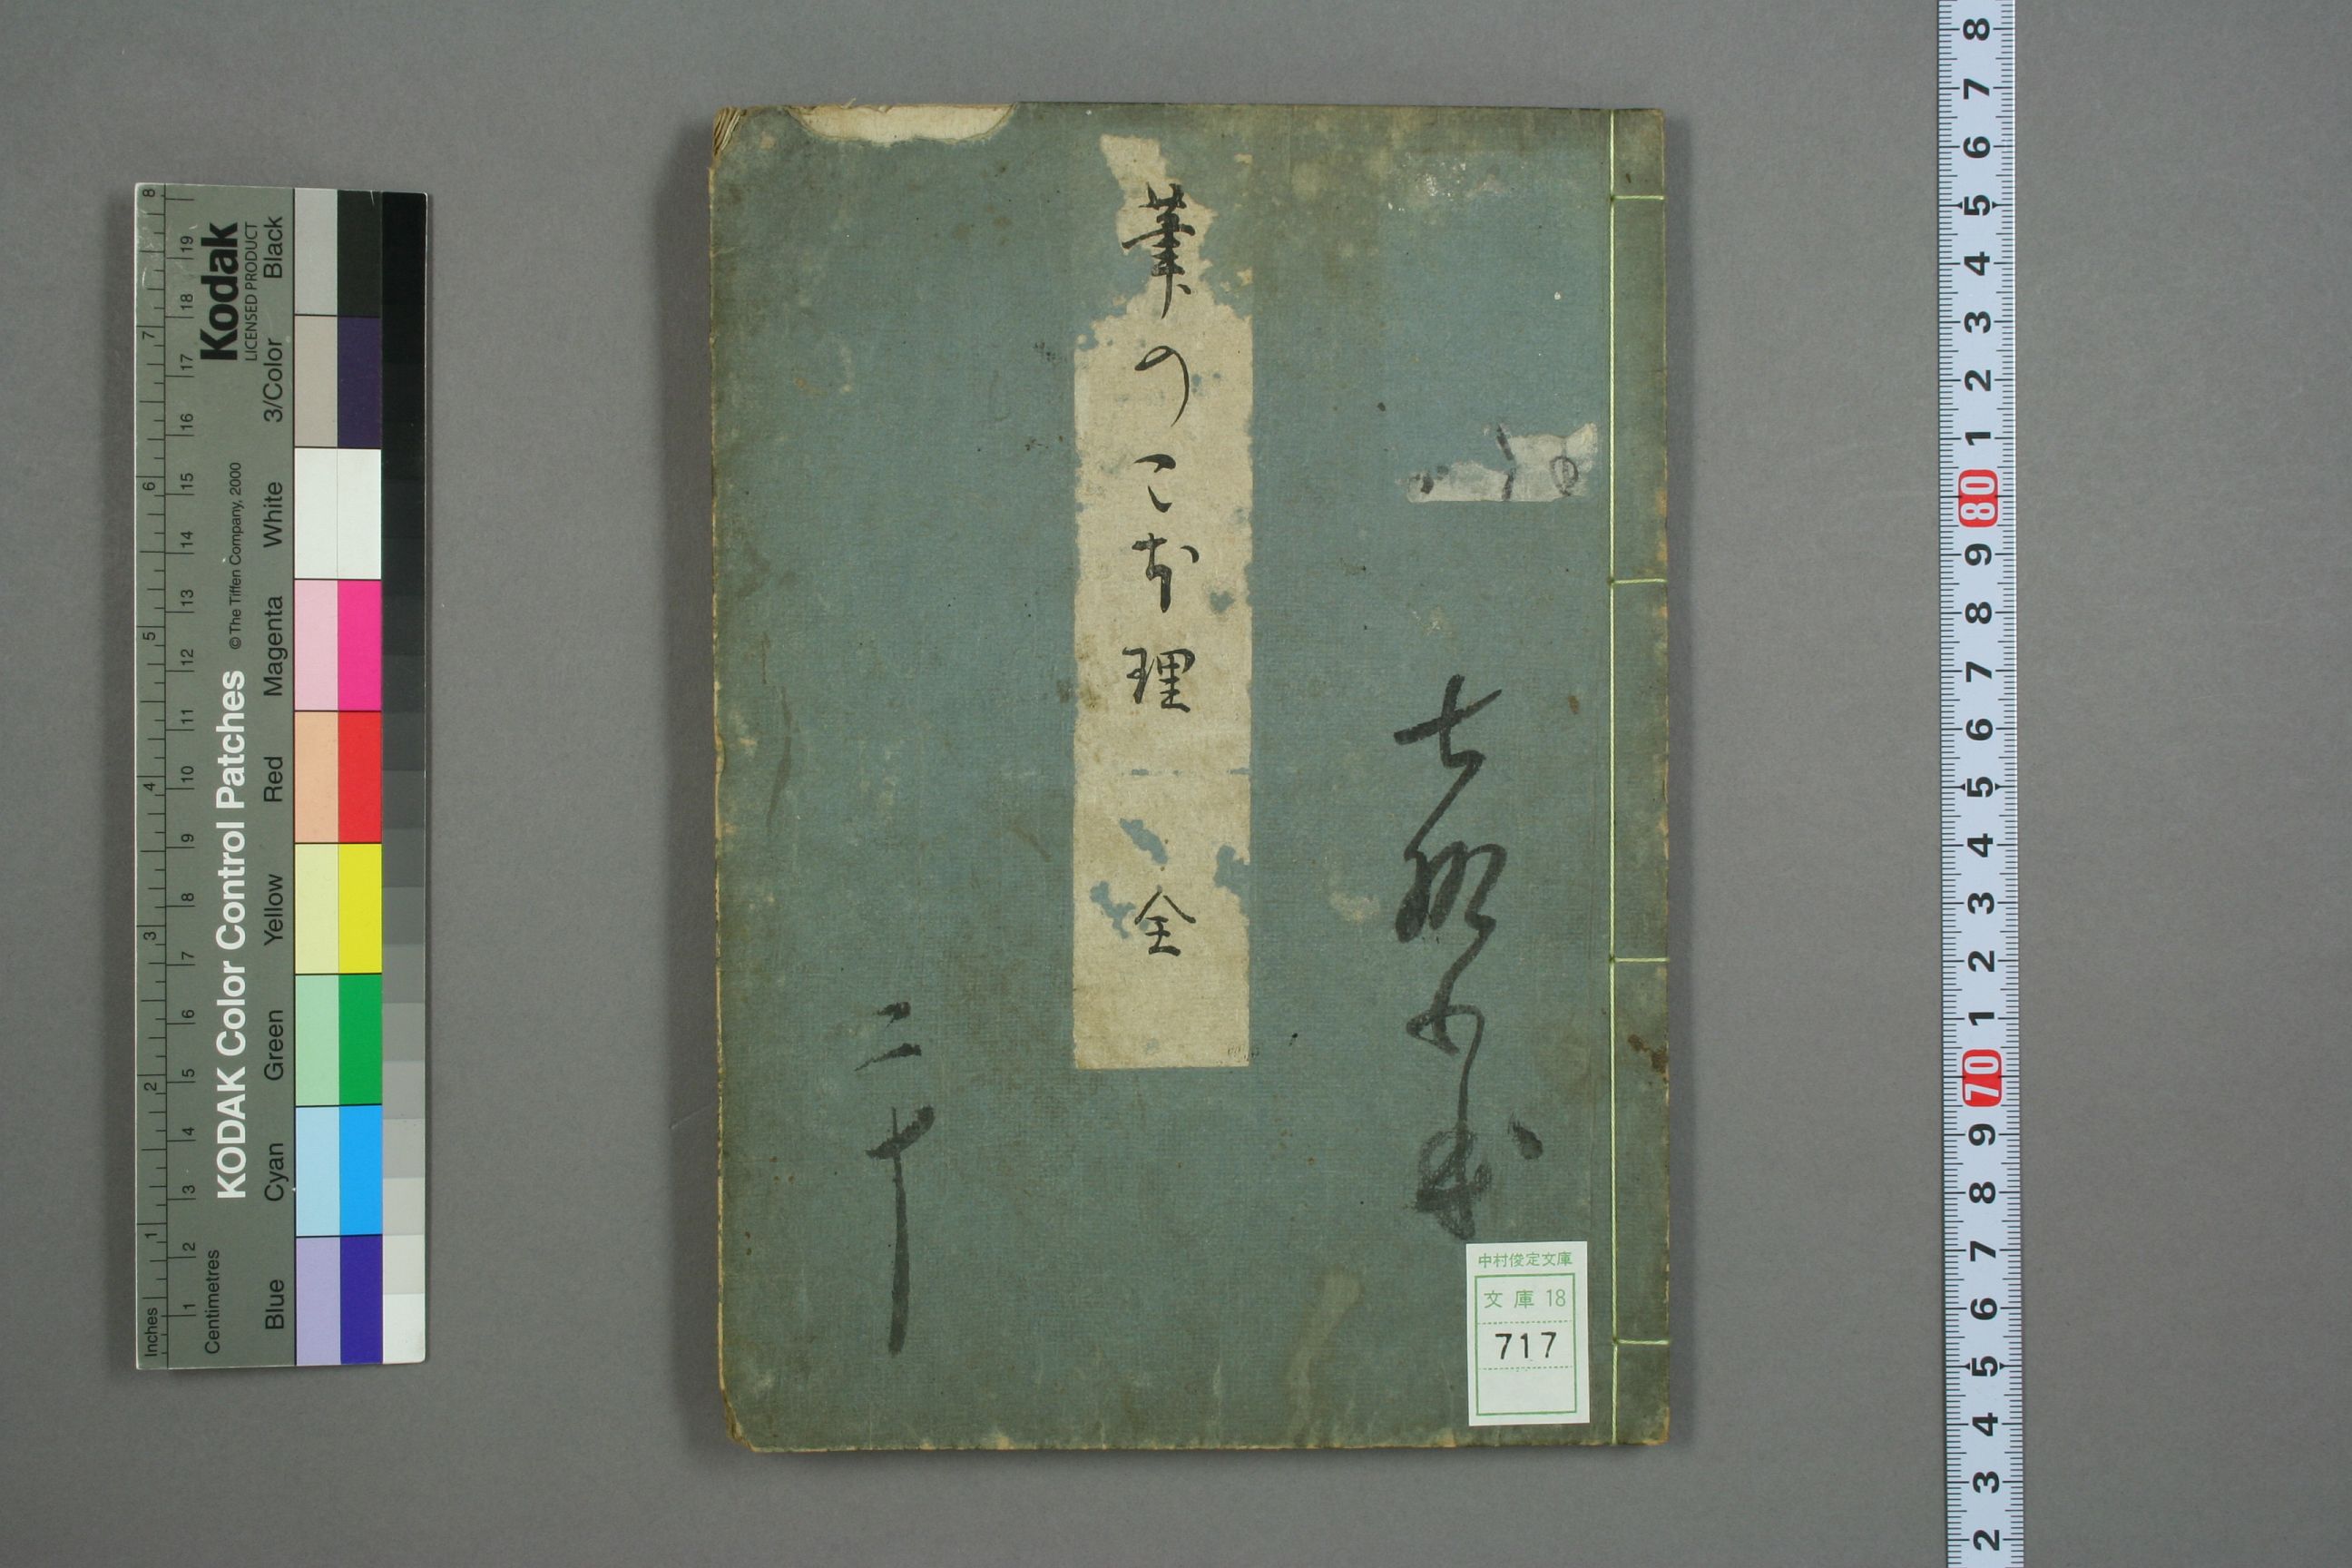 筆のこ本理 全
二十
中村俊定文庫
文庫 18
717
Kodak
LICENSED PRODUCT
KODAK Color Control Patches
©The Tiffen Company, 2000
Black
3/Color
White
Magenta
Red
Yellow
Green
Cyan
Blue
Centimetres
1 2 3 4 5 6 7 8 9 10 11 12 13 14 15 16 17 18 19
Inches
1 2 3 4 5 6 7 8
8 7 6 5 4 3 2 1 80 9 8 7 6 5 4 3 2 1 70 9 8 7 6 5 4 3 2